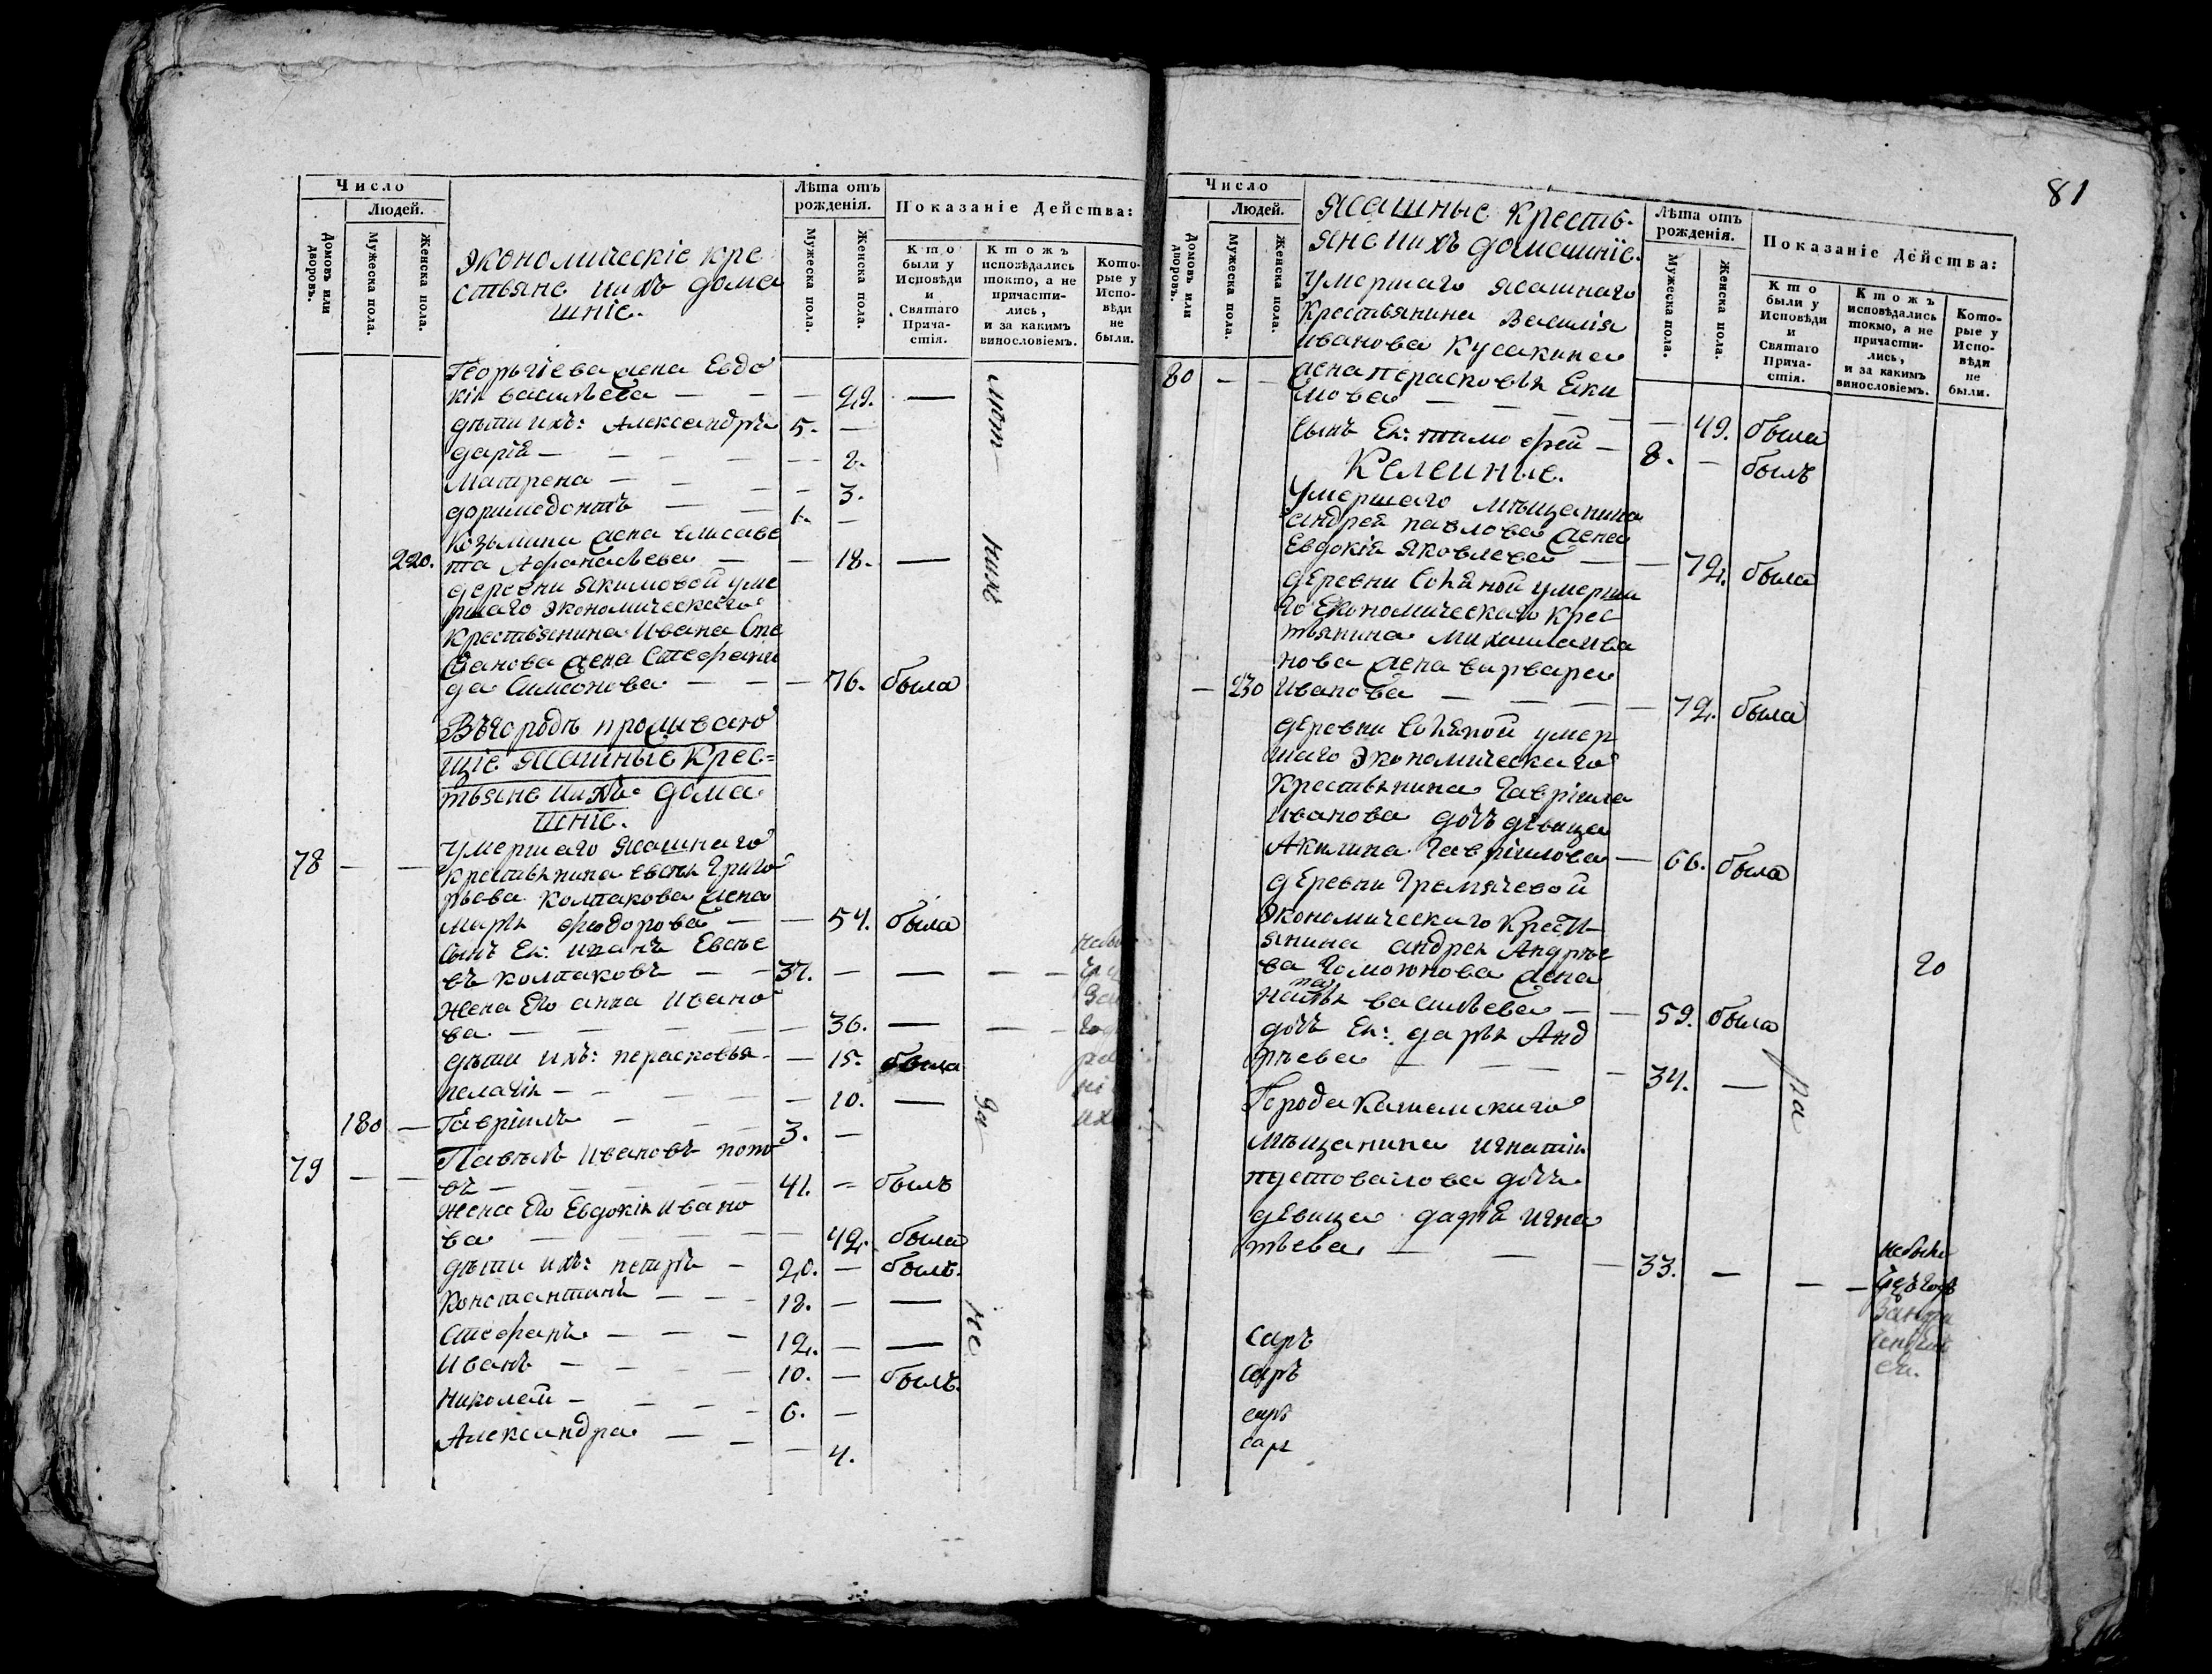 Число
Людей.
Домовъ или дворовъ.
Мужеска пола.
Женска пола.
экономическіе кре
стьяне и ихъ дома
шніе.
Лѣта отъ рожденія.
Мужеска пола.
Женска пола.
Показаніе Действа:
Кто были у Исповѣди и Святаго Причастія.
Ктожъ исповѣдались токмо, а не причастились, и за какимъ винословіемъ.
Которые у Исповѣди не были.
Георьгіева жена Евдо
кія васильева — — — 29. —
дѣти ихъ: Александръ 5. —
дарія — — — — — 2.
Матрена — — — — 3.
доримедонтъ — — 1. —
Козьмина жена елисаве
220. та Афонасьева — — 18. —
деревни якимовой уме
ршаго экономическаго
крестьянина Ивана Сте
панова жена Стефани
да Симеонова — — — 76. была
Въ городѣ проживаю
щіе ясашные Крес=
тьяне и ихъ дома
шніе.
умершаго ясашнаго
78 — — крестьянина евсея Григо
рьева колпакова жена
марья феодорова — — 54. была
сынъ Ея: иванъ Евсѣе
въ колпаковъ — — 37. — — — —
жена Его анна Ивано
ва — — — — — 36. — — —
дѣти ихъ: перасковья — — 15. была
пелагія — — — — — 10. —
180 — Гавріилъ — — — 3. —
79 — — Павелъ Ивановъ попо
въ — — — — — 41. — былъ
жена Его Евдокія Ивано
ва — — — — — 42. была
дѣти ихъ: петръ — 20. — былъ.
Константинъ — — — 18. — —
Стефанъ — — — 12. — —
Иванъ — — — — 10. — былъ.
Николай — — — — 6. —
Александра — — — 4.
нихъ
за
не
81
Число
Людей.
Домовъ или дворовъ.
Мужеска пола.
Женска пола.
Ясашные кресть-
яне и ихъ домашніе.
Лѣта отъ рожденія.
Мужеска пола.
Женска пола.
Показаніе Действа:
Кто были у Исповѣди и Святаго Причастія.
Ктожъ исповѣдались токмо, а не причастились, и за какимъ винословіемъ.
Которые у Исповѣди не были.
умершаго ясашнаго
крестьянина Василія
иванова Кусакина
80 — — жена перасковья Еки
мова — — — — — 49. была
сынъ Ея: тимофей — 8. — былъ
Келейные.
умершаго мѣщанина
андрея павлова жена
Евдокія Яковлева — — 72. была
деревни умерша
го Економическаго крес
тьянина михаила ива
нова жена варвара
— 230 Иванова — — — — 72. была
деревни умер
шаго экономическаго
крестьянина Гавріила
Иванова дочь дѣвица
Акилина Гавріилова — 66. была
деревни Гремячевой
экономическаго Крест
янина андрея Андрѣе
ва жена
васильева — — 59. была
дочь Ея: дарья Анд
рѣева — — — — 34. —
20
на
Города
мѣщанина игнатія
пустовалова дочь
дѣвица дарія игна
тьева — — — 33. — — —
небыла
саръ
саръ
саръ
саръ